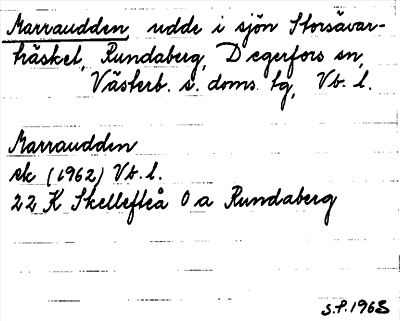 Marraudden udde i sjön Storsävar-
träsket, Rundaberg, Degerfors sn,
Västerb. s. doms. tg, Vb. l.
Marraudden
ek (1962) Vb. l.
22 K Skellefteå 0 a Rundaberg
S.P. 1963